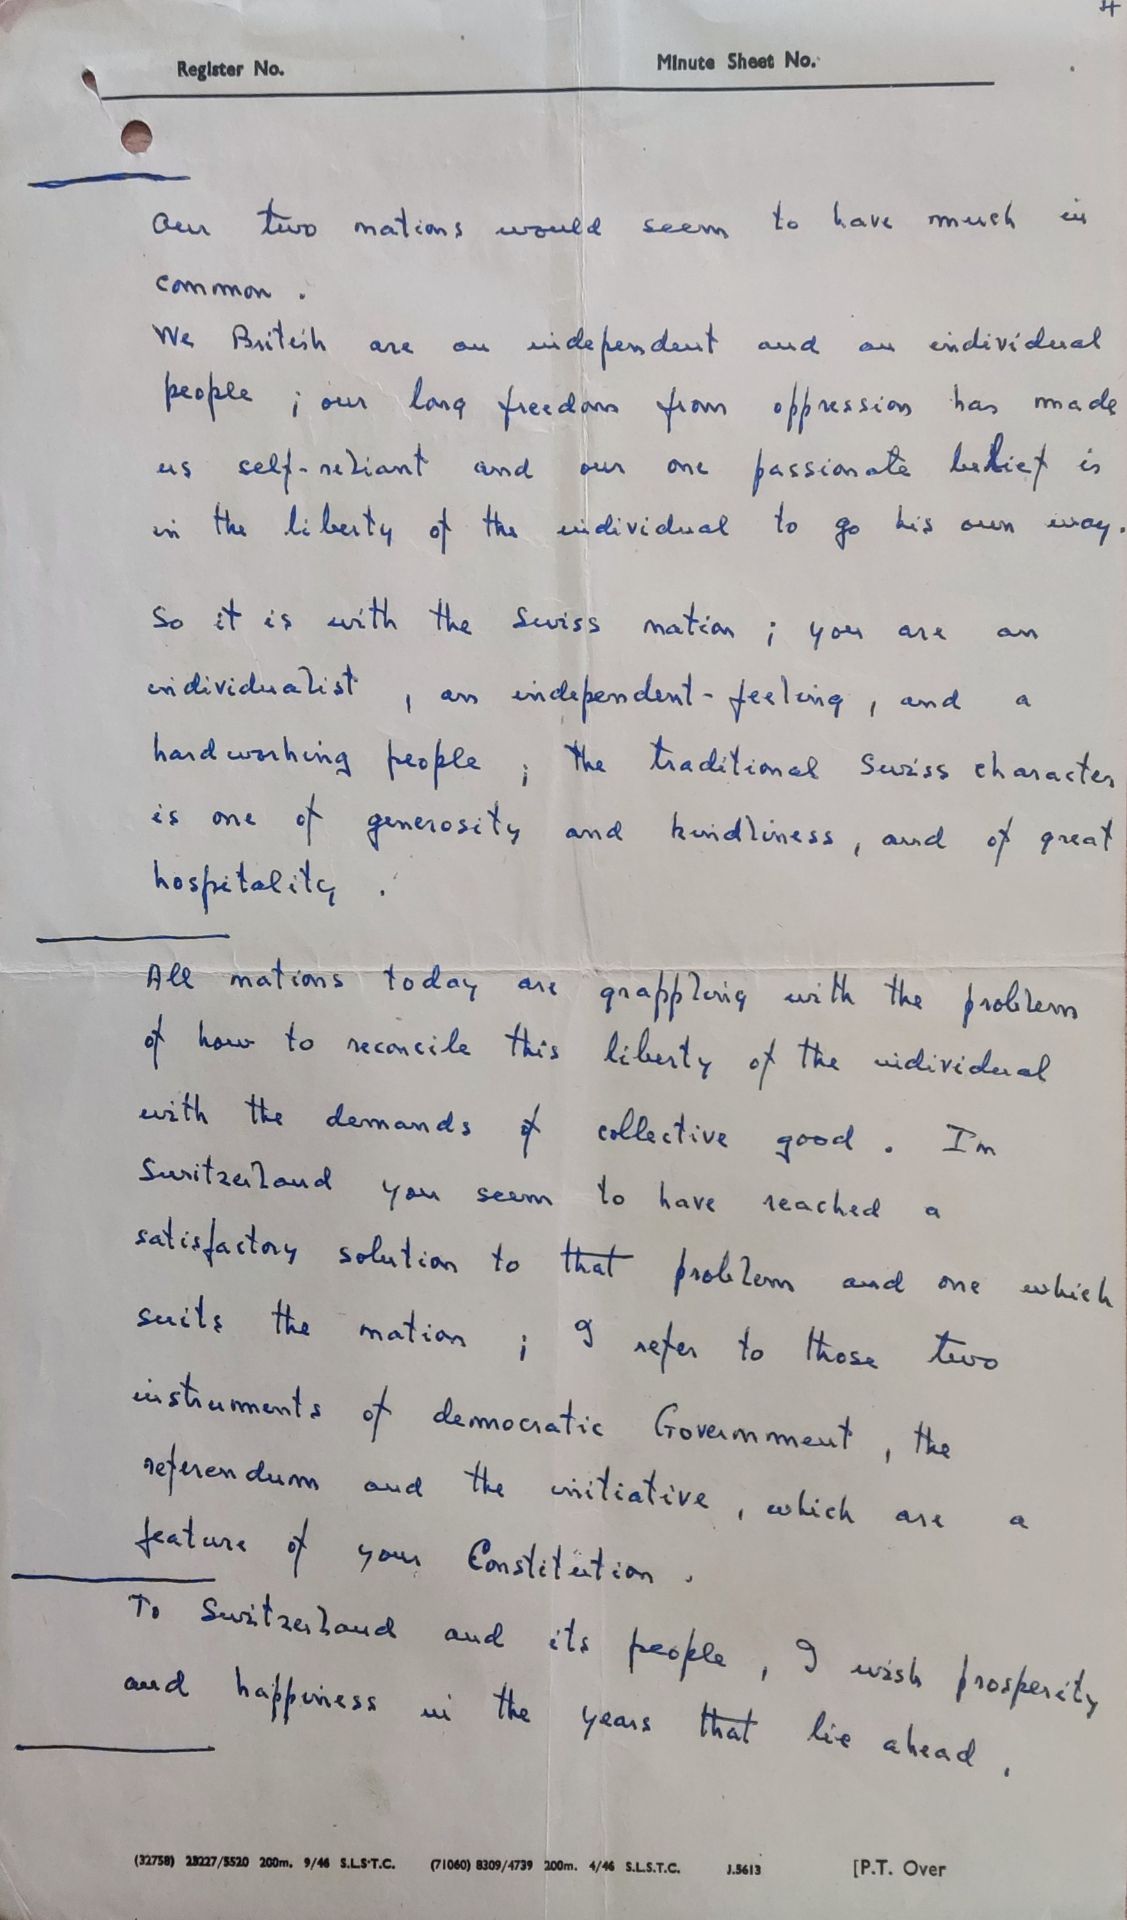 4
Register No. Minute Sheet No.
Our two nations would seem to have much in
common.
We British are an independent and an individual
people; our long freedom from oppression has made
us self-reliant and our one passionate belief is
in the liberty of the individual to go his own way.
So it is with the Swiss nation; you are an
individualist, an independent-feeling, and a
hardworking people; the traditional Swiss character
is one of generosity and kindliness, and of great
hospitality.
All nations today are grappling with the problem
of how to reconcile this liberty of the individual
with the demands of collective good. In
Switzerland you seem to have reached a
satisfactory solution to that problem and one which
suits the nation; I refer to those two
instruments of democratic Government, the
referendum and the initiative, which are a
feature of your Constitution.
To Switzerland and its people, I wish prosperity
and happiness in the years that lie ahead.
(32758) 25227/5520 200m. 9/46 S.L.S.T.C. (71060) 8309/4739 200m. 4/46 S.L.S.T.C. J.5613 [P.T. Over